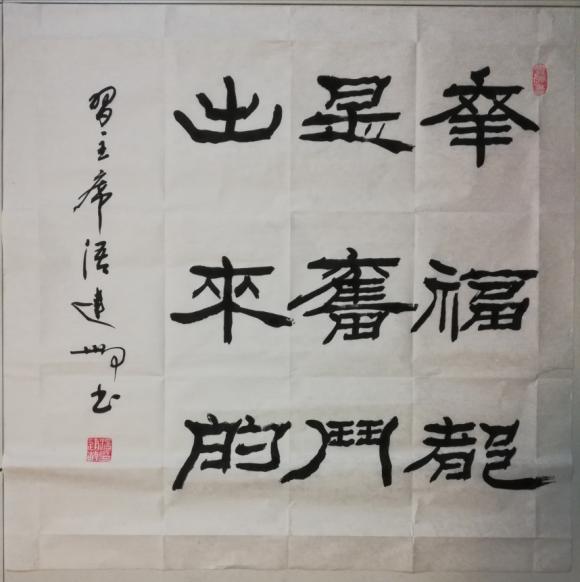 幸福都
是奮鬥
出來的
習主席語建卿书